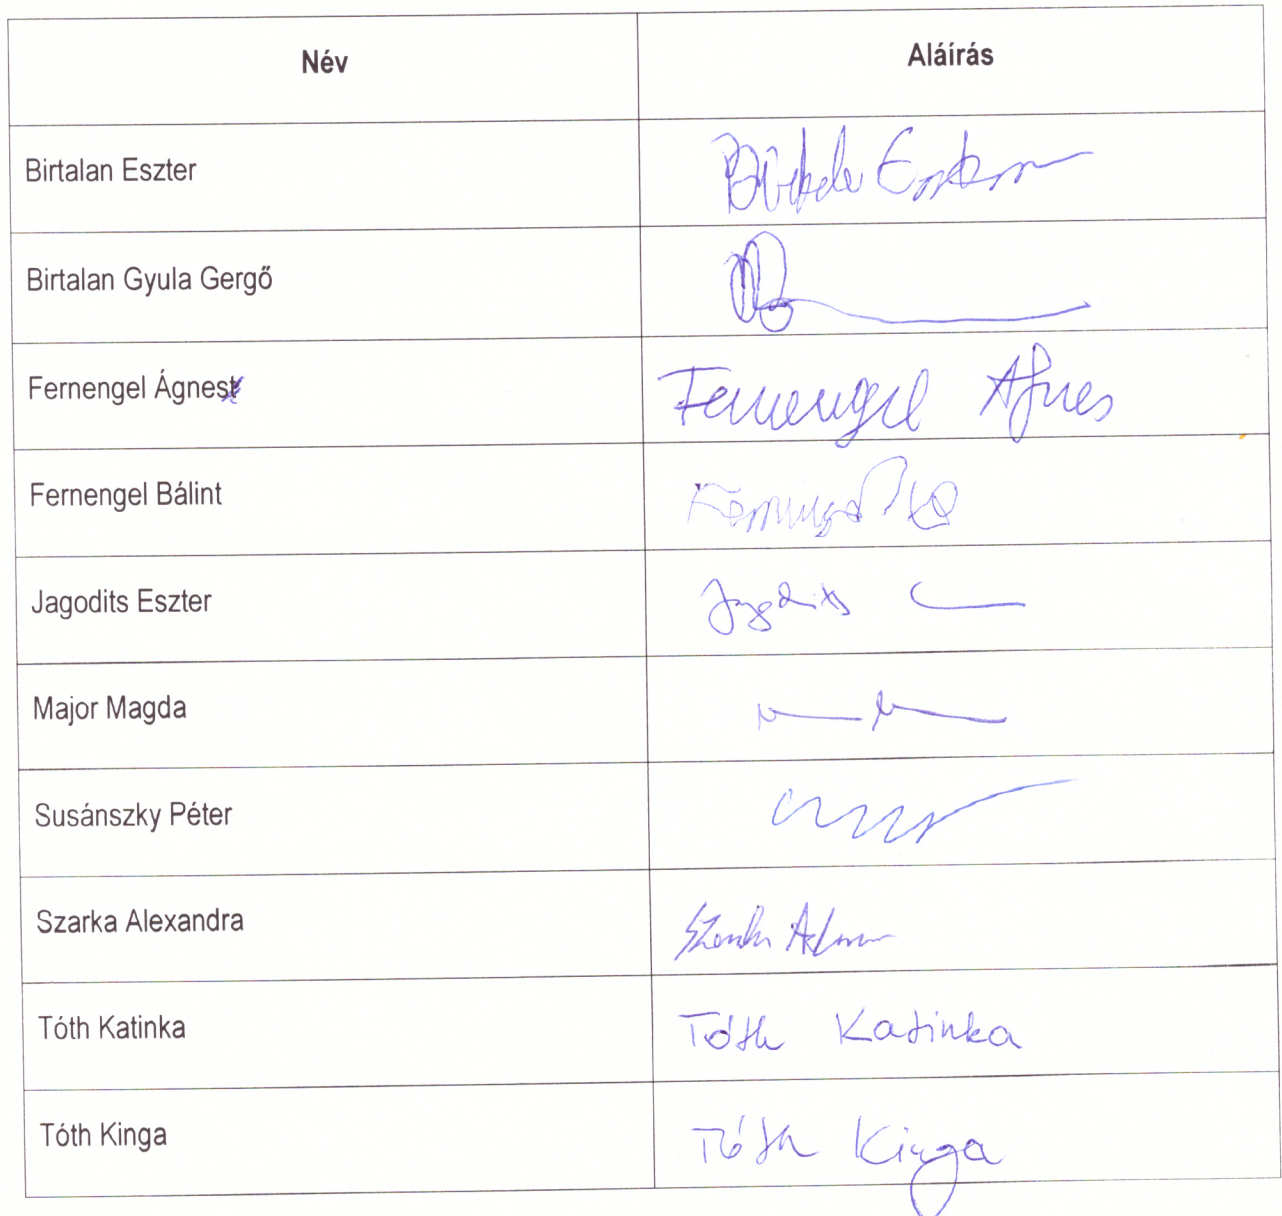 Név Aláírás
Birtalan Eszter
Birtalan Gyula Gergő
Fernengel Ágnes Fernengel Ágnes
Fernengel Bálint
Jagodits Eszter Jagodits
Major Magda
Susánszky Péter
Szarka Alexandra
Tóth Katinka Tóth Katinka
Tóth Kinga Tóth Kinga